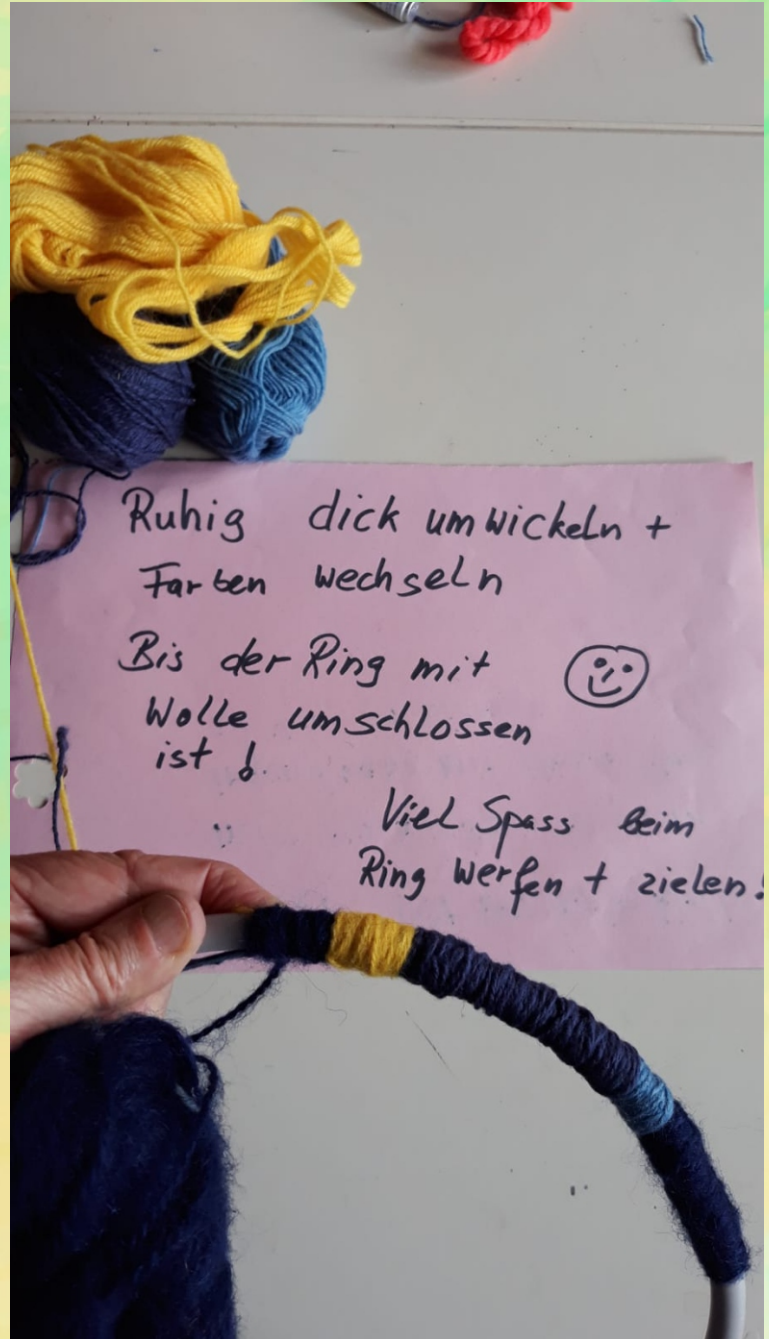 Ruhig dick umwickeln +
Farben wechseln
Bis der Ring mit
Wolle umschlossen
ist !
Viel Spass beim
Ring werfen + zielen!